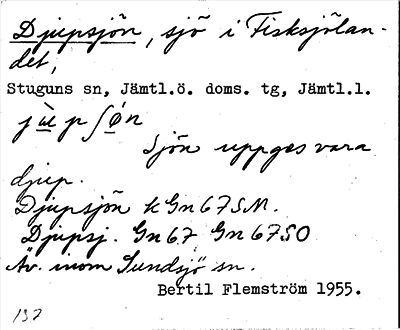 Djupsjön, sjö i Fisksjölan-
det,
Stuguns sn, Jämtl.ö. doms. tg, Jämtl.l.
jùpʃǿn
Sjön uppges vara
djup.
Djupsjön k Gn67SM.
"Djupsj. Gn67 Gn67SO
Äv. inom Sundsjö sn.
Bertil Flemström 1955.
132